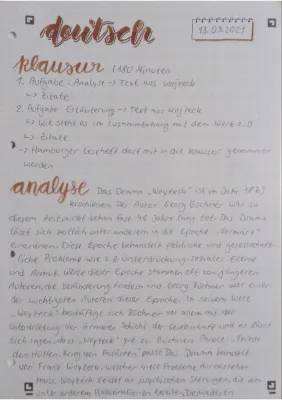 deutsch
13.03.2021
Klausur (180 Minuten
1. Aufgabe: Analyse → Text aus Woyzeck
↳ Zitate
2. Aufgabe: Erläuterung → Text aus Woyzeck
↳ Wie steht es im Zusammenhang mit dem Werk z.B
↳ Zitate
→ Hamburger Leseheft darf mit in die Klausur genommen
werden
analyse Das Drama „Woyzeck" ist im Jahr 1879
erschienen. Der Autor Georg Büchner war zu
diesem Zeitpunkt schon fast 40 Jahre lang tot. Das Drama
lässt sich zeitlich unter anderem in die Epoche „Vormärz"
einordnen. Diese Epoche behandelt politische und gesellschaft-
liche Probleme wie z.B Unterdrückung, soziales Elend
und Armut. Werke dieser Epoche stammen oft von jüngeren
Autoren, die Veränderung fordern und Georg Büchner war einer
der wichtigsten Autoren dieser Epoche. In seinem Werk
„Woyzeck" beschäftigt sich Büchner vor allem mit der
Unterdrückung der ärmeren Schicht der Gesellschaft und es lässt
sich sagen, dass „Woyzeck" gut zu Büchners Parole „Friede
den Hütten, Krieg den Palästen" passt. Das Drama handelt
von Franz Woyzeck, welcher viele Probleme durchstehen
muss. Woyzeck leidet an psychischen Störungen, die sich
unter anderem Halluzinationen